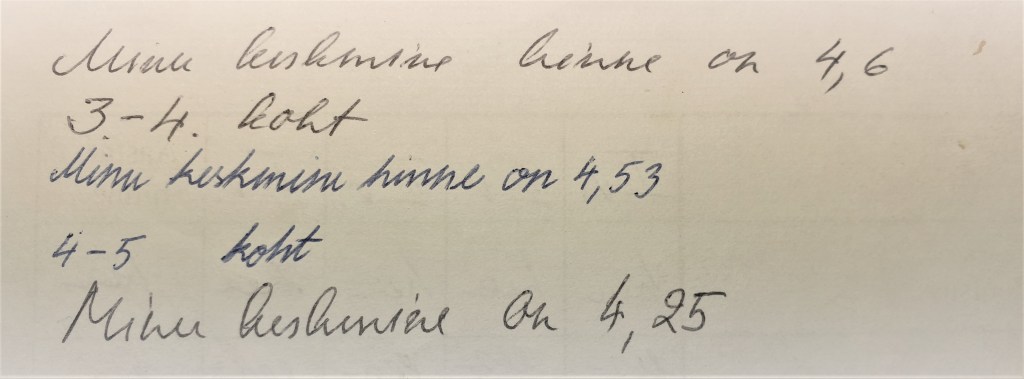 Minu keskmine hinne on 4,6
3.-4. koht
Minu keskmine hinne on 4,53
4-5 koht
Minu keskmine on 4,25